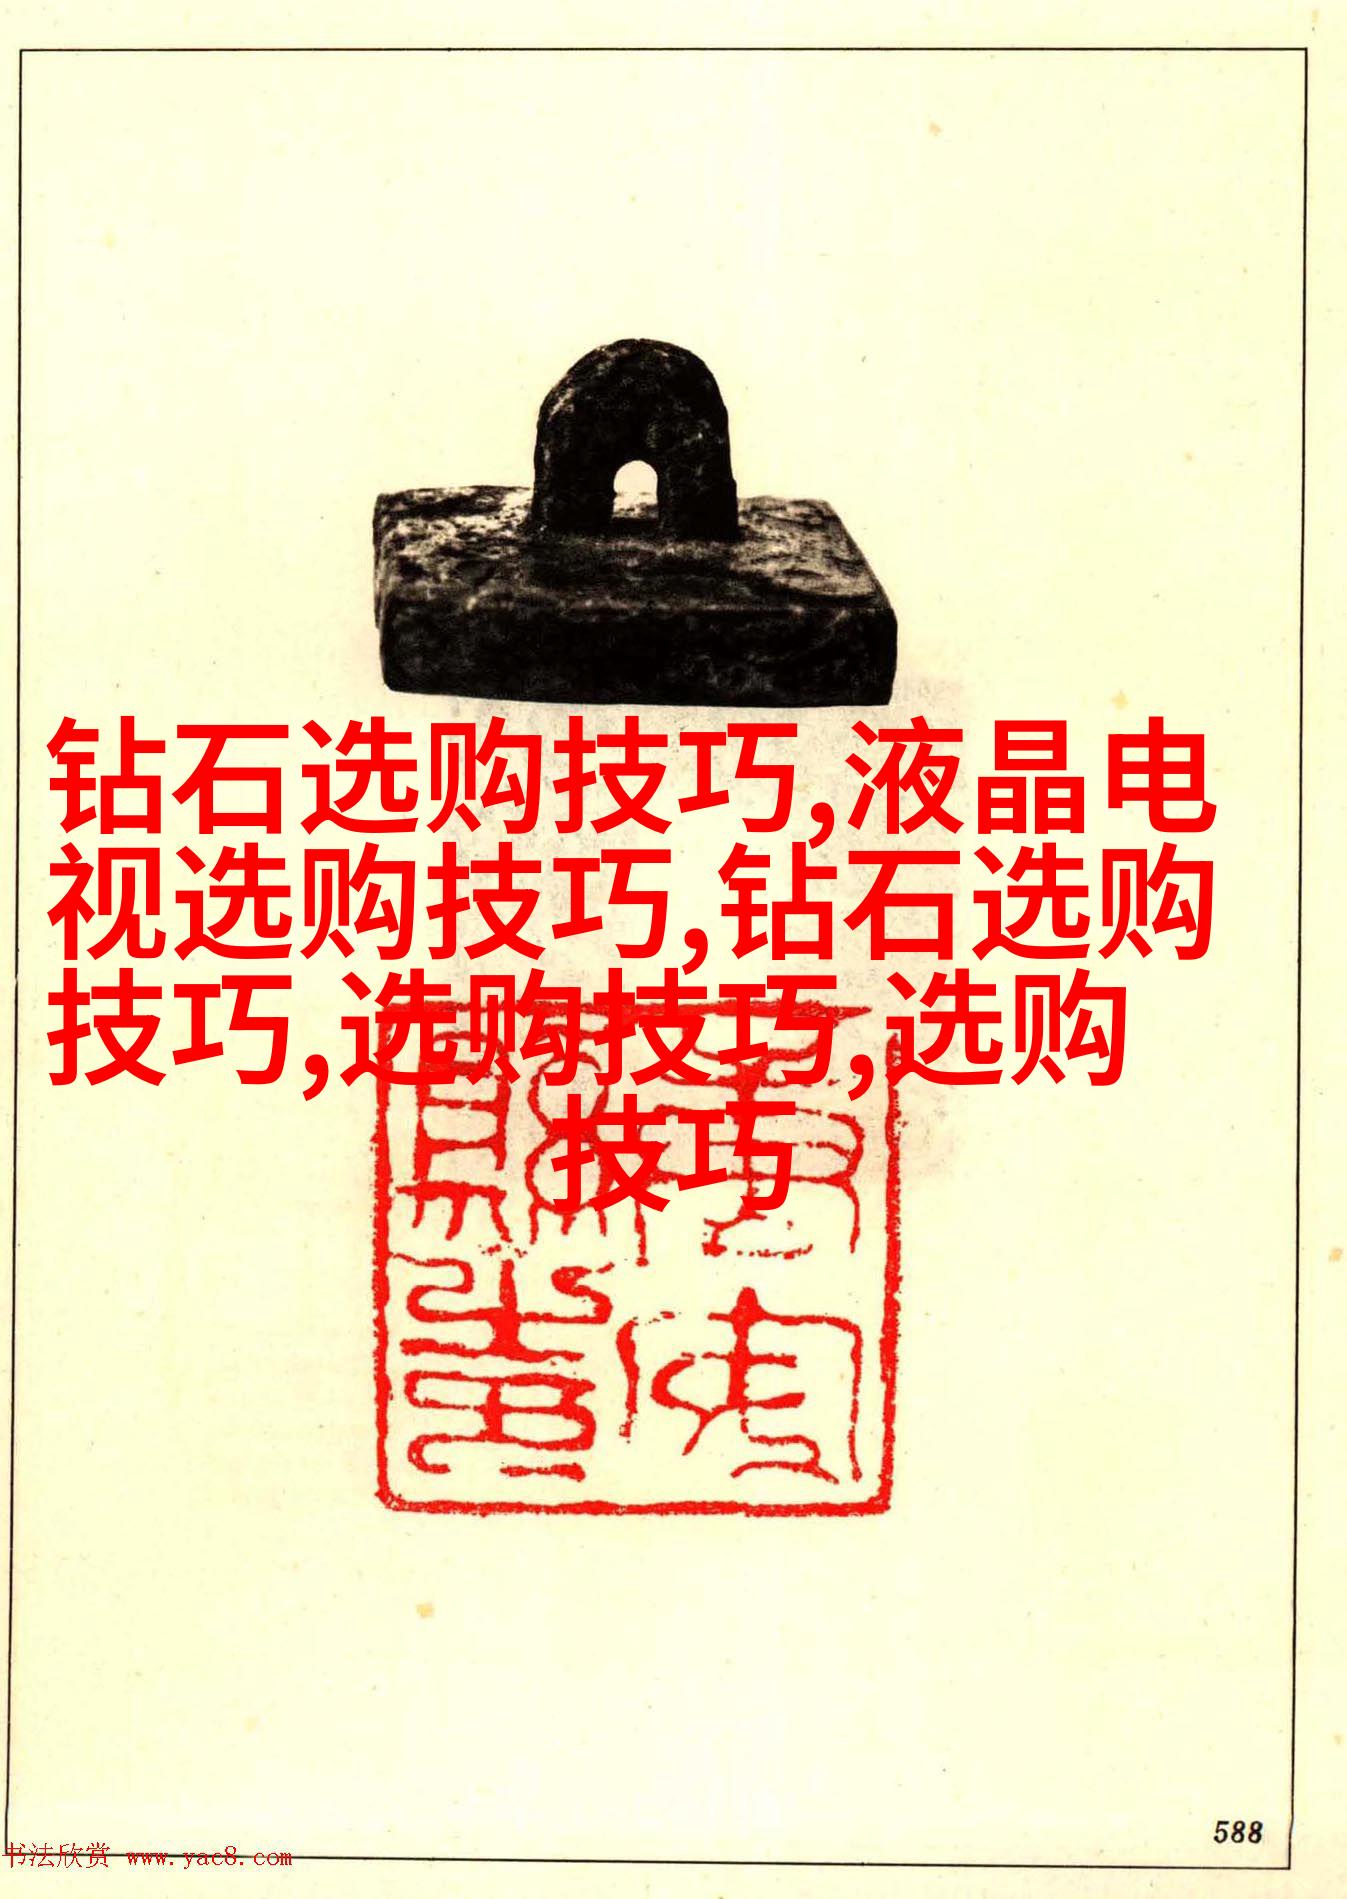 钻石选购技巧,液晶电
视选购技巧,钻石选购
技巧,选购技巧,选购
技巧
588
书法欣赏 www.yac8.com